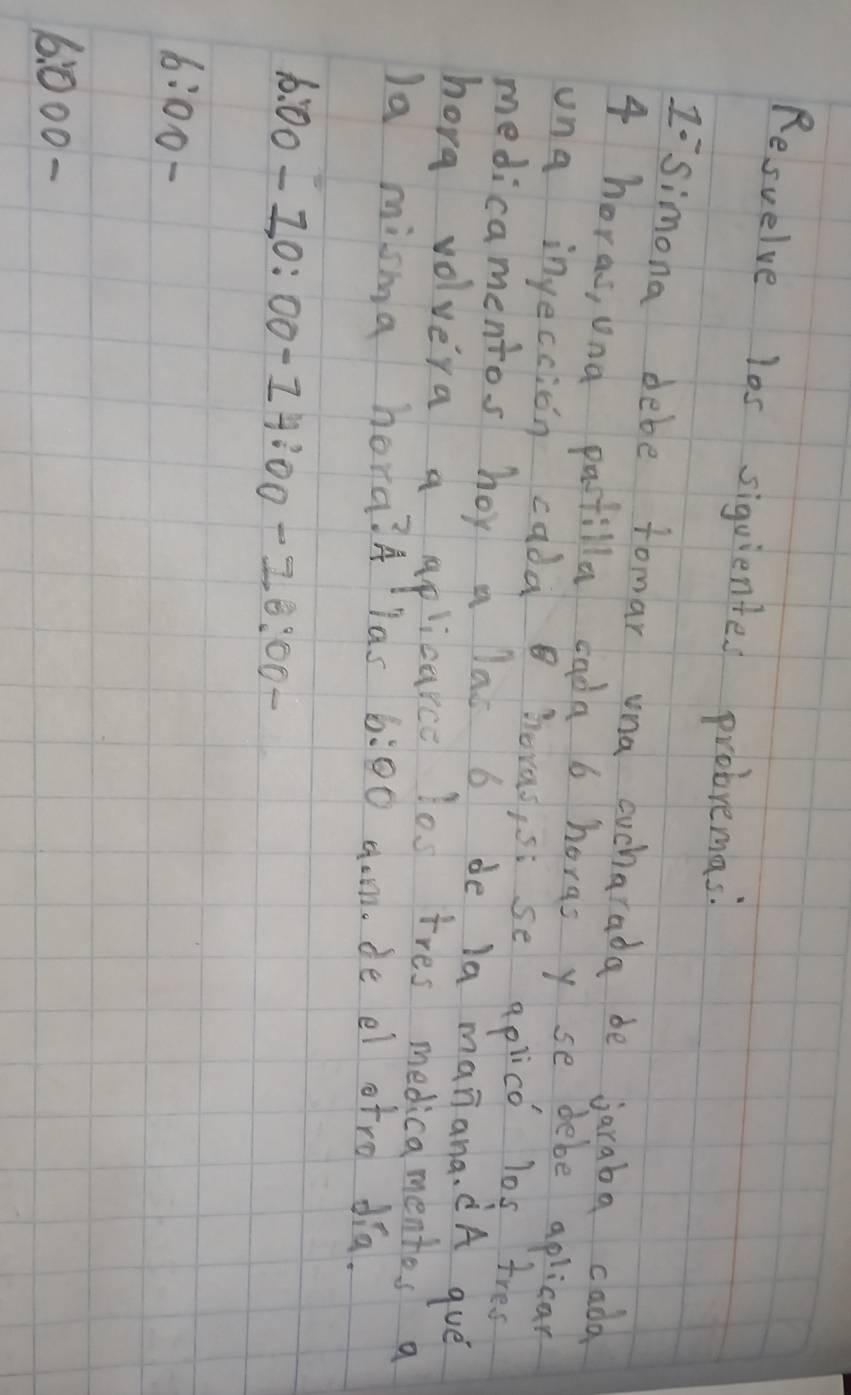 Resuelve los siguientes probremas.
1. Simona debe tomar una cucharada de jaraba cada
4 horas, una pastilla cada 6 horas y se debe aplicar
una inyección cada 8 horas, si se aplicó los tres
medicamentos hoy a las 6 de la mañana. ¿A qué
hora volvéra a aplicarce los tres medicamentos a
la misma hora? A las 6:00 a.m. de el otro día.
6:00 - 10:00 - 14:00 - 18:00 -
6:00 -
6:000 -